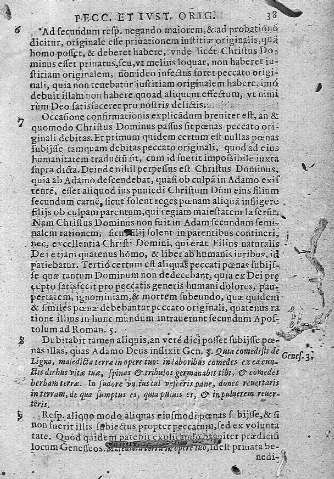 PECC. ET IUST. ORIG. 38
6 Ad secundum resp. negando maiorem, & ad probationē
dicitur, originale esse priuationem iustitiæ originalis, quā
homo posset, & deberet habere, vnde licet Christus Do-
minus esset priuatus, seu, vt melius loquar, non haberet iu-
stitiam originalem, non ideo infectus foret peccato origi-
nali, quia non tenebatur iustitiam originalem habere, imò
debuit illam non habere quoad aliquem effectum, vt nimi
rum Deo satisfaceret pro nostris delictis.
7 Occasione confirmationis explicandum breuiter est, an &
quomodo Christus Dominus passus sit pœnas peccato origi-
nali debitas. Et primum quidem certum est nullas pœnas
subijsse tamquam debitas peccato originali, quod ad eius
humanitatem traduci sit, cum id fuerit impossibile iuxta
supra dicta. Deinde nihil perpessus est Christus Dominus,
quia ab Adamo descendebat, quasi ob culpā in Adamo exis
tente, esset aliquod ius puniendi Christum Dñm eius filium
secundum carnē, sicut solent reges pœnam aliquā infligere
filijs ob culpam parentum, qui regiam maiestatem læserūt.
Nam Christus Dominus non fuit in Adam secundum semi-
nalem rationem, sicut filij solent in parentibus contineri,
nec, excellentia Christi Domini, qui erat Filius naturalis
Dei etiam quatenus homo, & liber ab humanis iuribus, id
patiebatur. Tertiò certum est aliquas peccati pœnas subijs-
se quæ tantum Dominum non dedecebant, quia ex Dei præ
cepto satisfecit pro peccatis generis humani dolores, pau-
pertatem, ignominiam, & mortem subeundo, quæ quidem
& similes pœnæ debebantur peccato originali, quatenus ra
tione illius in hunc mundum intrauerunt secundum Apos-
tolum ad Roman. 5.
8 Dubitabit tamen aliquis, an verè dici posset subijsse pœ-
nas illas, quas Adamo Deus indixit Gen. 3. Quia comedisti de
Ligno, maledicta terra in opere tuo: in laboribus comedes ex ea cun-
ctis diebus vitæ tuæ, spinas & tribulos germinabit tibi, & comedes
herbam terræ. In sudore vultus tui vesceris pane, donec reuertaris
in terram, de qua sumptus es, quia puluis es, & in puluerem reuer-
teris.
Genes. 3.
9 Resp. aliquo modo aliquas eiusmodi pœnas subijsse, & si
non fuerit illis subiectus propter peccatum, sed ex volunta
tate. Quod quidem patebit explicando breuiter prædictū
locum Geneseos. Maledicta terra in opere tuo, idest priuata be-
nedi-